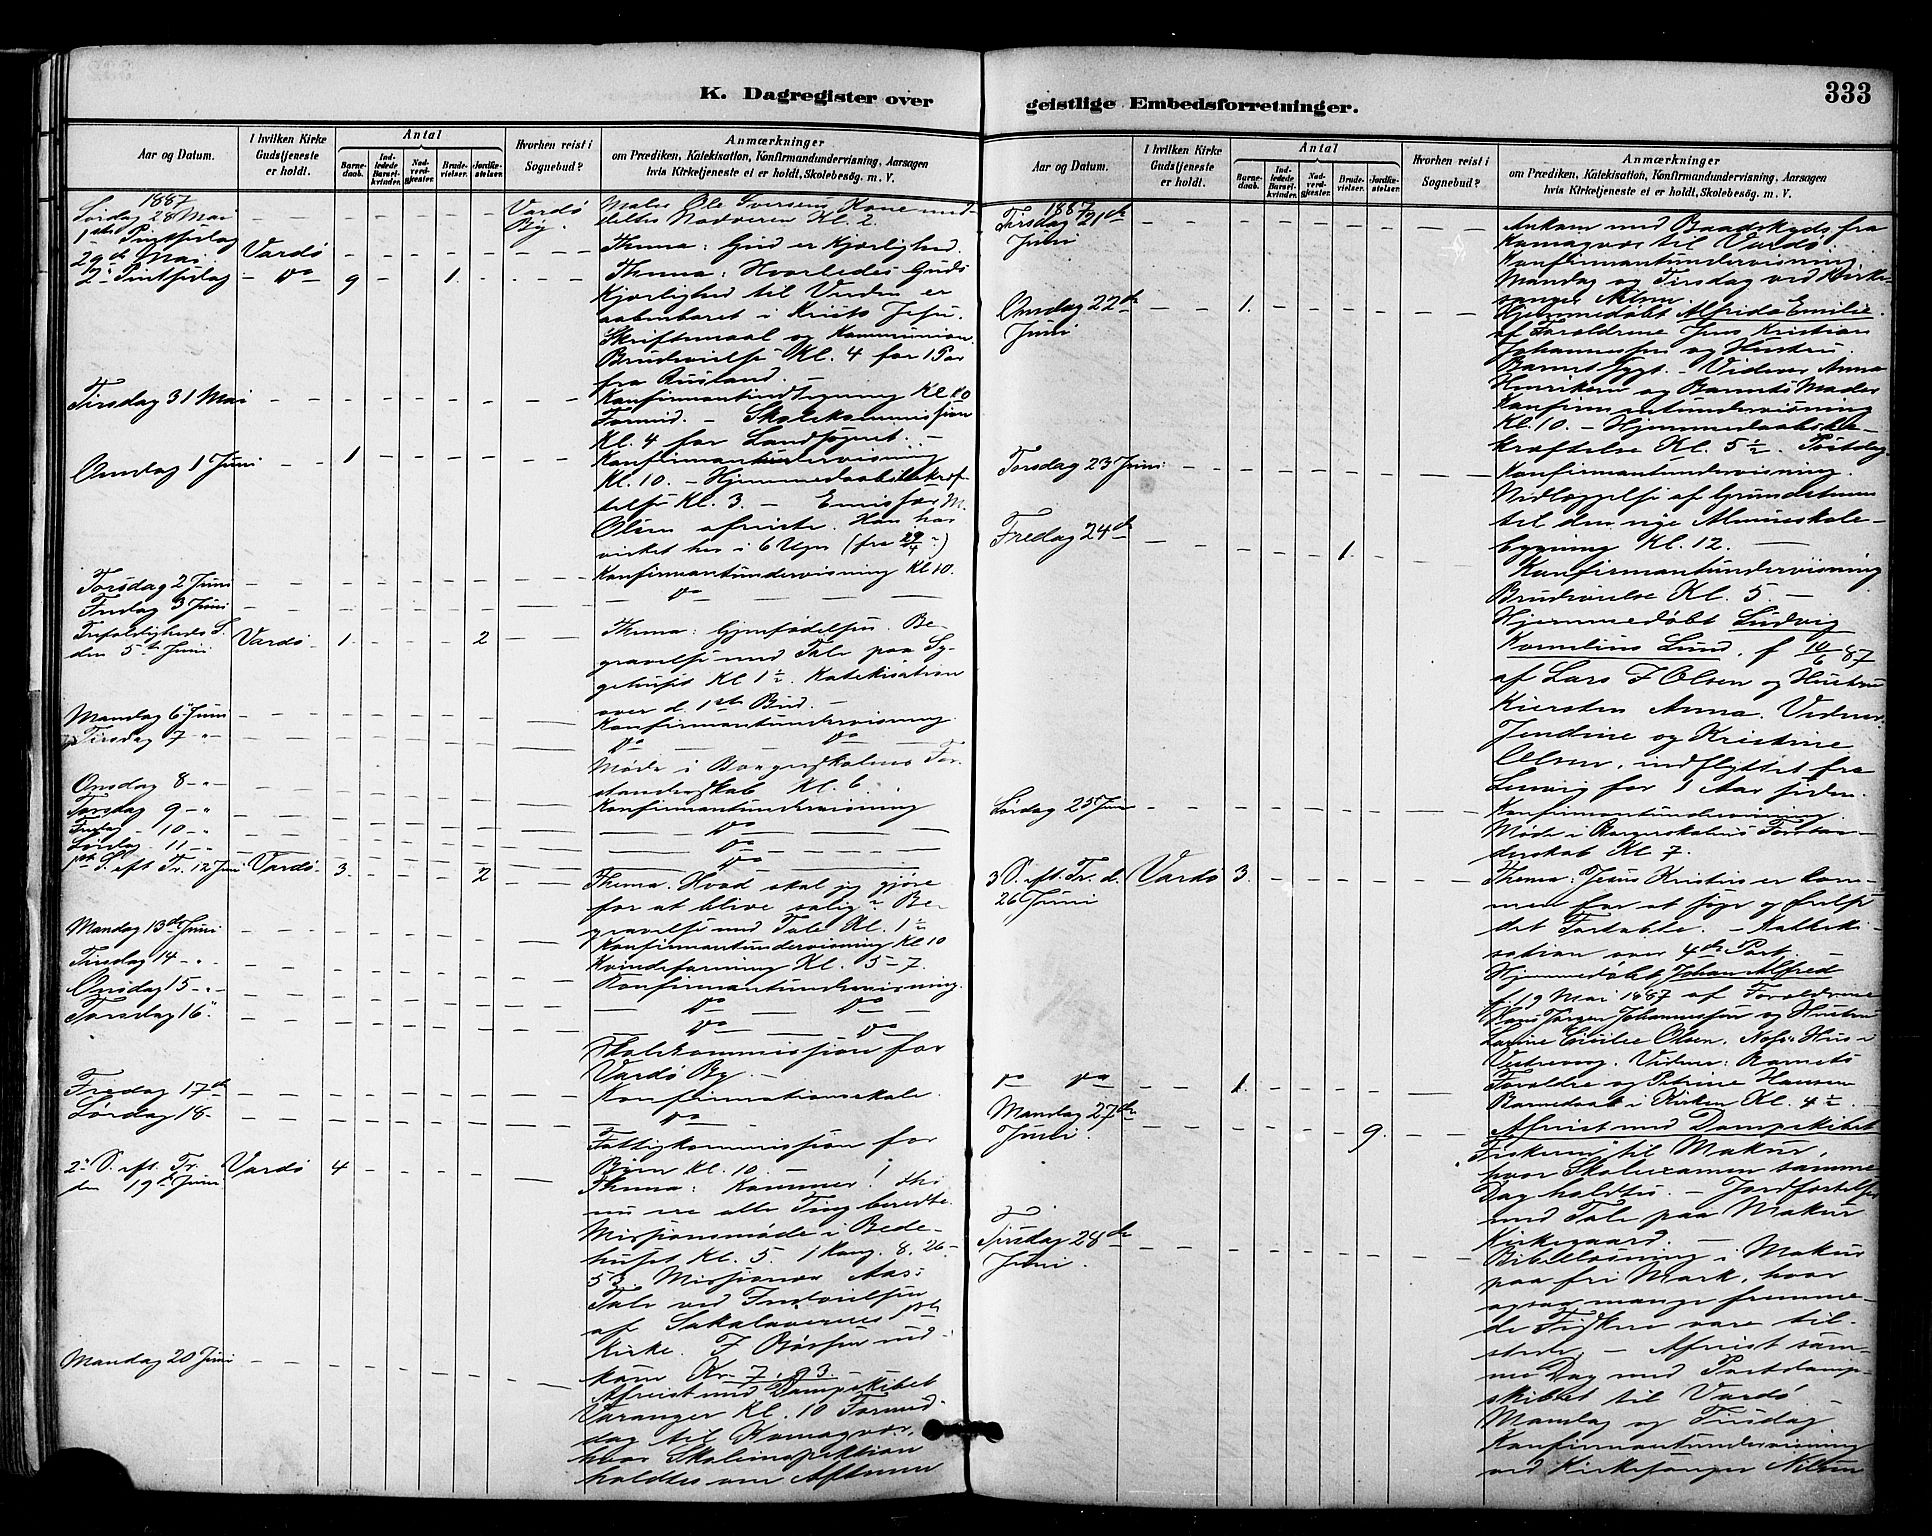 K. Dagregister over
Aar og Datum.
I hvilken Kirke Gudstjeneste er holdt.
Antal
Barnedaab.
Indledede Barselkvinder.
Nadverdgjester.
Brudevielser.
Jordfæstelser.
Hvorhen reist i Sognebud?
Anmærkninger
om Prædiken, Katekisation, Konfirmandundervisning, Aarsagen
hvis Kirketjeneste ei er holdt, Skolebesøg. m. V.
1887
Lørdag 28 Mai — — — — — — Vardø By. Maler Ole Iversens Kone med-
deltes Nadveren Kl. 2.
1ste Pintsedag
29de Mai. Vardø — — — — — — Thema: Gud er Kjærlighed.
2. Pintsedag — do — 9 — — 1. — — Thema: Hvorledes Guds
Kjærlighed til Verden er
aabenbaret i Kristo Jesu.
Skriftemaal og Kommunion.
Brudevielse Kl. 4 for 1 Par
fra Rusland. —
Tirsdag 31 Mai — — — — — — — Konfirmantindtegning Kl. 10
Formid. — Skolekommission
Kl. 4 for Landsognet. —
Onsdag 1 Juni — — 1 — — — — — Konfirmantundervisning
Kl. 10. — Hjemmedaabsbekræf-
telse Kl. 3. — Emissær M.
Olsen afreiste. Han har
virket her i 6 Uger (fra 29/4)
Torsdag 2 Juni — — — — — — — Konfirmantundervisning Kl 10.
Fredag 3 Juni — — — — — — — do —
Trefoldigheds S.
den 5te Juni Vardø 1. — — — 2 — Thema: Gjenfødelsen. Be-
gravelse med Tale paa Sy-
gehuset Kl 1½. Katekisation
over d. 1ste Bud. —
Mandag 6 Juni — — — — — — — Konfirmantundervisning.
Tirsdag 7 — — — — — — — — do — do —
Møde i Borgerskolens For-
standerskab Kl. 6.
Onsdag 8 — — — — — — — — Konfirmantundervisning
Torsdag 9 — — — — — — — — do —
Fredag — 10 — — — — — — — — do —
Lørdag. 11 — — — — — — — — do —
1ste S. eft Tr. 12 Juni Vardø 3. — — — 2 — — Thema: Hvad skal jeg gjøre
for at blive salig? Be-
gravelse med Tale Kl. 1½
Mandag 13de Juni — — — — — — — Konfirmantundervisning Kl 10
Kvindeforening Kl. 5-7.
Tirsdag 14 — — — — — — — — Konfirmantundervisning.
Onsdag 15 — — — — — — — — do — do —
Torsdag 16 — — — — — — — do — do
Skolekommission for
Vardø By. —
Fredag 17de — — — — — — — Konfirmationsskole.
Lørdag 18 — — — — — — — do —
Fattigkommission for
Byen Kl. 10. —
2. S. eft. Tr.
den 19de Juni Vardø 4 — — — — — Thema: Kommer! thi
nu ere alle Ting beredte.
Missionsmøde i Bede-
huset Kl. 5. 1 Kong. 8, 26-
53. Missionær Aas:
Tale ved Indvielsen
af Sakalavernes 1ste
Kirke. I Bøssen ind-
kom Kr. 7,93 —
Mandag 20 Juni — — — — — — — Afreist med Dampskibet
Varanger Kl. 10 Formid-
dag til Komagvær,
hvor Skoleinspektion
holdtes om Aftenen
geistlige Embedsforretninger.
333
Aar og Datum.
I hvilken Kirke Gudstjeneste er holdt.
Antal
Barnedaab.
Indledede Barselkvinder.
Nadverdgjester.
Brudevielser.
Jordfæstelser.
Hvorhen reist i Sognebud?
Anmærkninger
om Prædiken, Katekisation, Konfirmandundervisning, Aarsagen
hvis Kirketjeneste ei er holdt, Skolebesøg. m. V.
1887
Tirsdag 21de
Juni — — — — — — — Ankom med Baadskyds fra
Komagvær til Vardø.
Konfirmantundervisning
Mandag og Tirsdag ved Kirke-
sanger Nilsen.
Onsdag 22de
Juni — — 1. — — — — — Hjemmedøbt Alfrida Emilie
af Forældrene Jens Kristian
Johannessen og Hustru.
Barnet sygt. Vidner Anna
Henriksen og Barnets Moder
Konfirmantundervisning
Kl. 10. — Hjemmedaabsbe-
kræftelse Kl. 5½.
Torsdag 23 Juni — — — — — — — Konfirmantundervisning.
Nedlæggelse af Grundstenen
til den nye Almueskole-
bygning Kl. 12. —
Fredag 24de — — — — — 1. — — Konfirmantundervisning
Brudevielse Kl. 5. —
Hjemmedøbt Ludvig
Kornelius Lund, f 14/6 87
af Lars J Olsen og Hustru
Kiersten Anna. Vidner:
Jendine og Kristine
Olsen, indflyttet fra
Lenvig for 1 Aar siden.
Lørdag 25 Juni — — — — — — — Konfirmantundervisning.
Møde i Borgerskolens Forstan-
derskab Kl 7.
3 S. eft. Tr. d.
26 Juni Vardø 3. — — — — — Thema: Jesus Kristus er kom-
men for at søge og frelse
det Fortabte. — Kateki-
sation over 4de Part. —
Hjemmedøbt Johan Alfred
f. 19 Mai 1887 af Forældrene
Hans Jørgen Johannessen og Hustru
Larine Cecilie Olsen, Hus i
Vestrevaag. Vidner: Barnets
Forældre og Petrine Hansen
do do — 1. — — — — — Barnedaab i Kirken Kl. 4½.
Mandag 27de
Juni. — — — — — 9. — — Afreist med Dampskibet
Fiskeren til Makur,
hvor Skoleexamen samme
Dag holdtes. — Jordfæstelse
med Tale paa Makur
Kirkegaard. —
Tirsdag 28de
Juni. — — — — — — — Bibellæsning i Makur
paa fri Mark, hvor
ogsaa mange fremme-
de Fiskere vare til-
stede. — Afreist sam-
me Dag med Postdamp-
skibet til Vardø. —
Mandag og Tirsdag
Konfirmantundervisning
ved Kirkesanger Nilsen